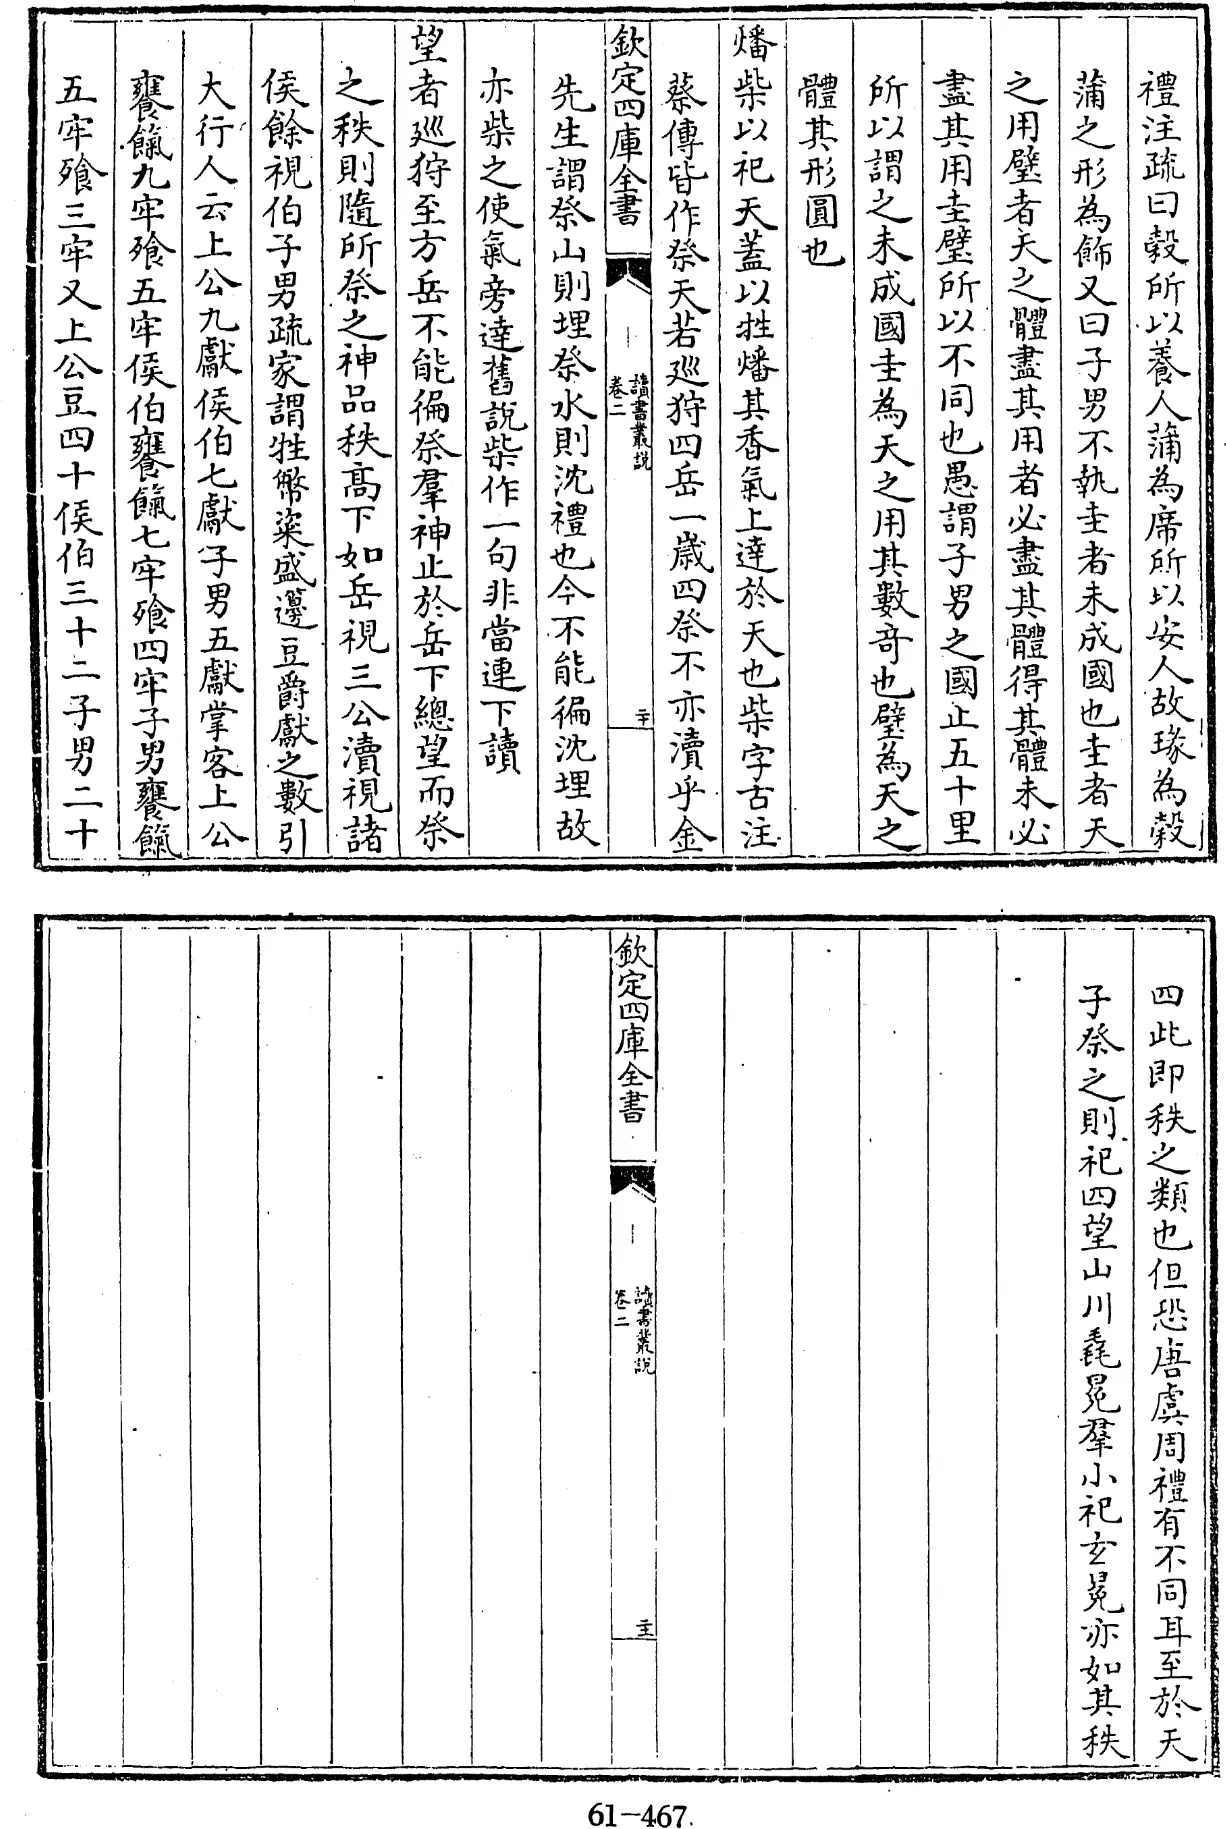 禮注疏曰穀所以養人蒲為席所以安人故瑑為穀
蒲之形為飾又曰子男不執圭者未成國也圭者天
之用璧者天之體盡其用者必盡其體得其體未必
盡其用圭璧所以不同也愚謂子男之國止五十里
所以謂之未成國圭為天之用其數奇也璧為天之
體其形圓也
燔柴以祀天蓋以牲燔其香氣上達於天也柴字古注
蔡傳皆作祭天若廵狩四岳一歳四祭不亦瀆乎金
欽定四庫全書
讀書叢說
卷二
二十
先生謂祭山則埋祭水則沈禮也今不能徧沈埋故
亦柴之使氣旁達舊說柴作一句非當連下讀
望者廵狩至方岳不能徧祭羣神止於岳下總望而祭
之秩則隨所祭之神品秩髙下如岳視三公瀆視諸
侯餘視伯子男疏家謂牲幣粢盛籩豆爵獻之數引
大行人云上公九獻侯伯七獻子男五獻掌客上公
饔餼九牢飱五牢侯伯饔餼七牢飱四牢子男饔餼
五牢飱三牢又上公豆四十侯伯三十二子男二十
四此即秩之類也但恐唐虞周禮有不同耳至於天
子祭之則祀四望山川毳冕羣小祀玄冕亦如其秩
欽定四庫全書
讀書叢說
卷二
61-467